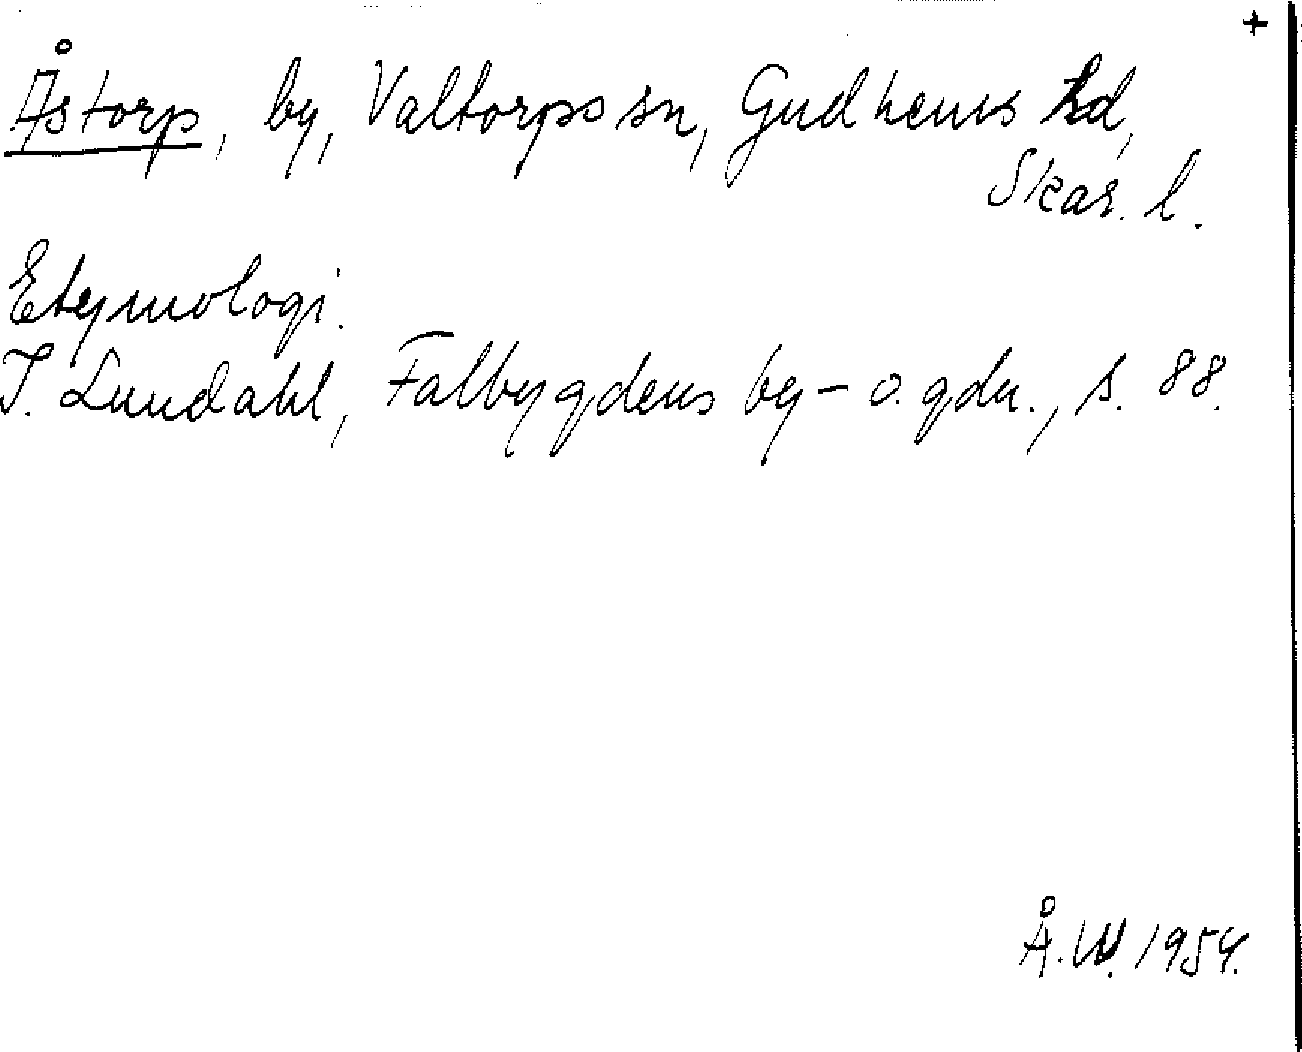 +
Åstorp, by, Valtorps sn, Gudhems hd,
Skar. l.
Etymologi.
I. Lundahl, Falbygdens by- o. gdn., s. 88.
Å.W. 1954.